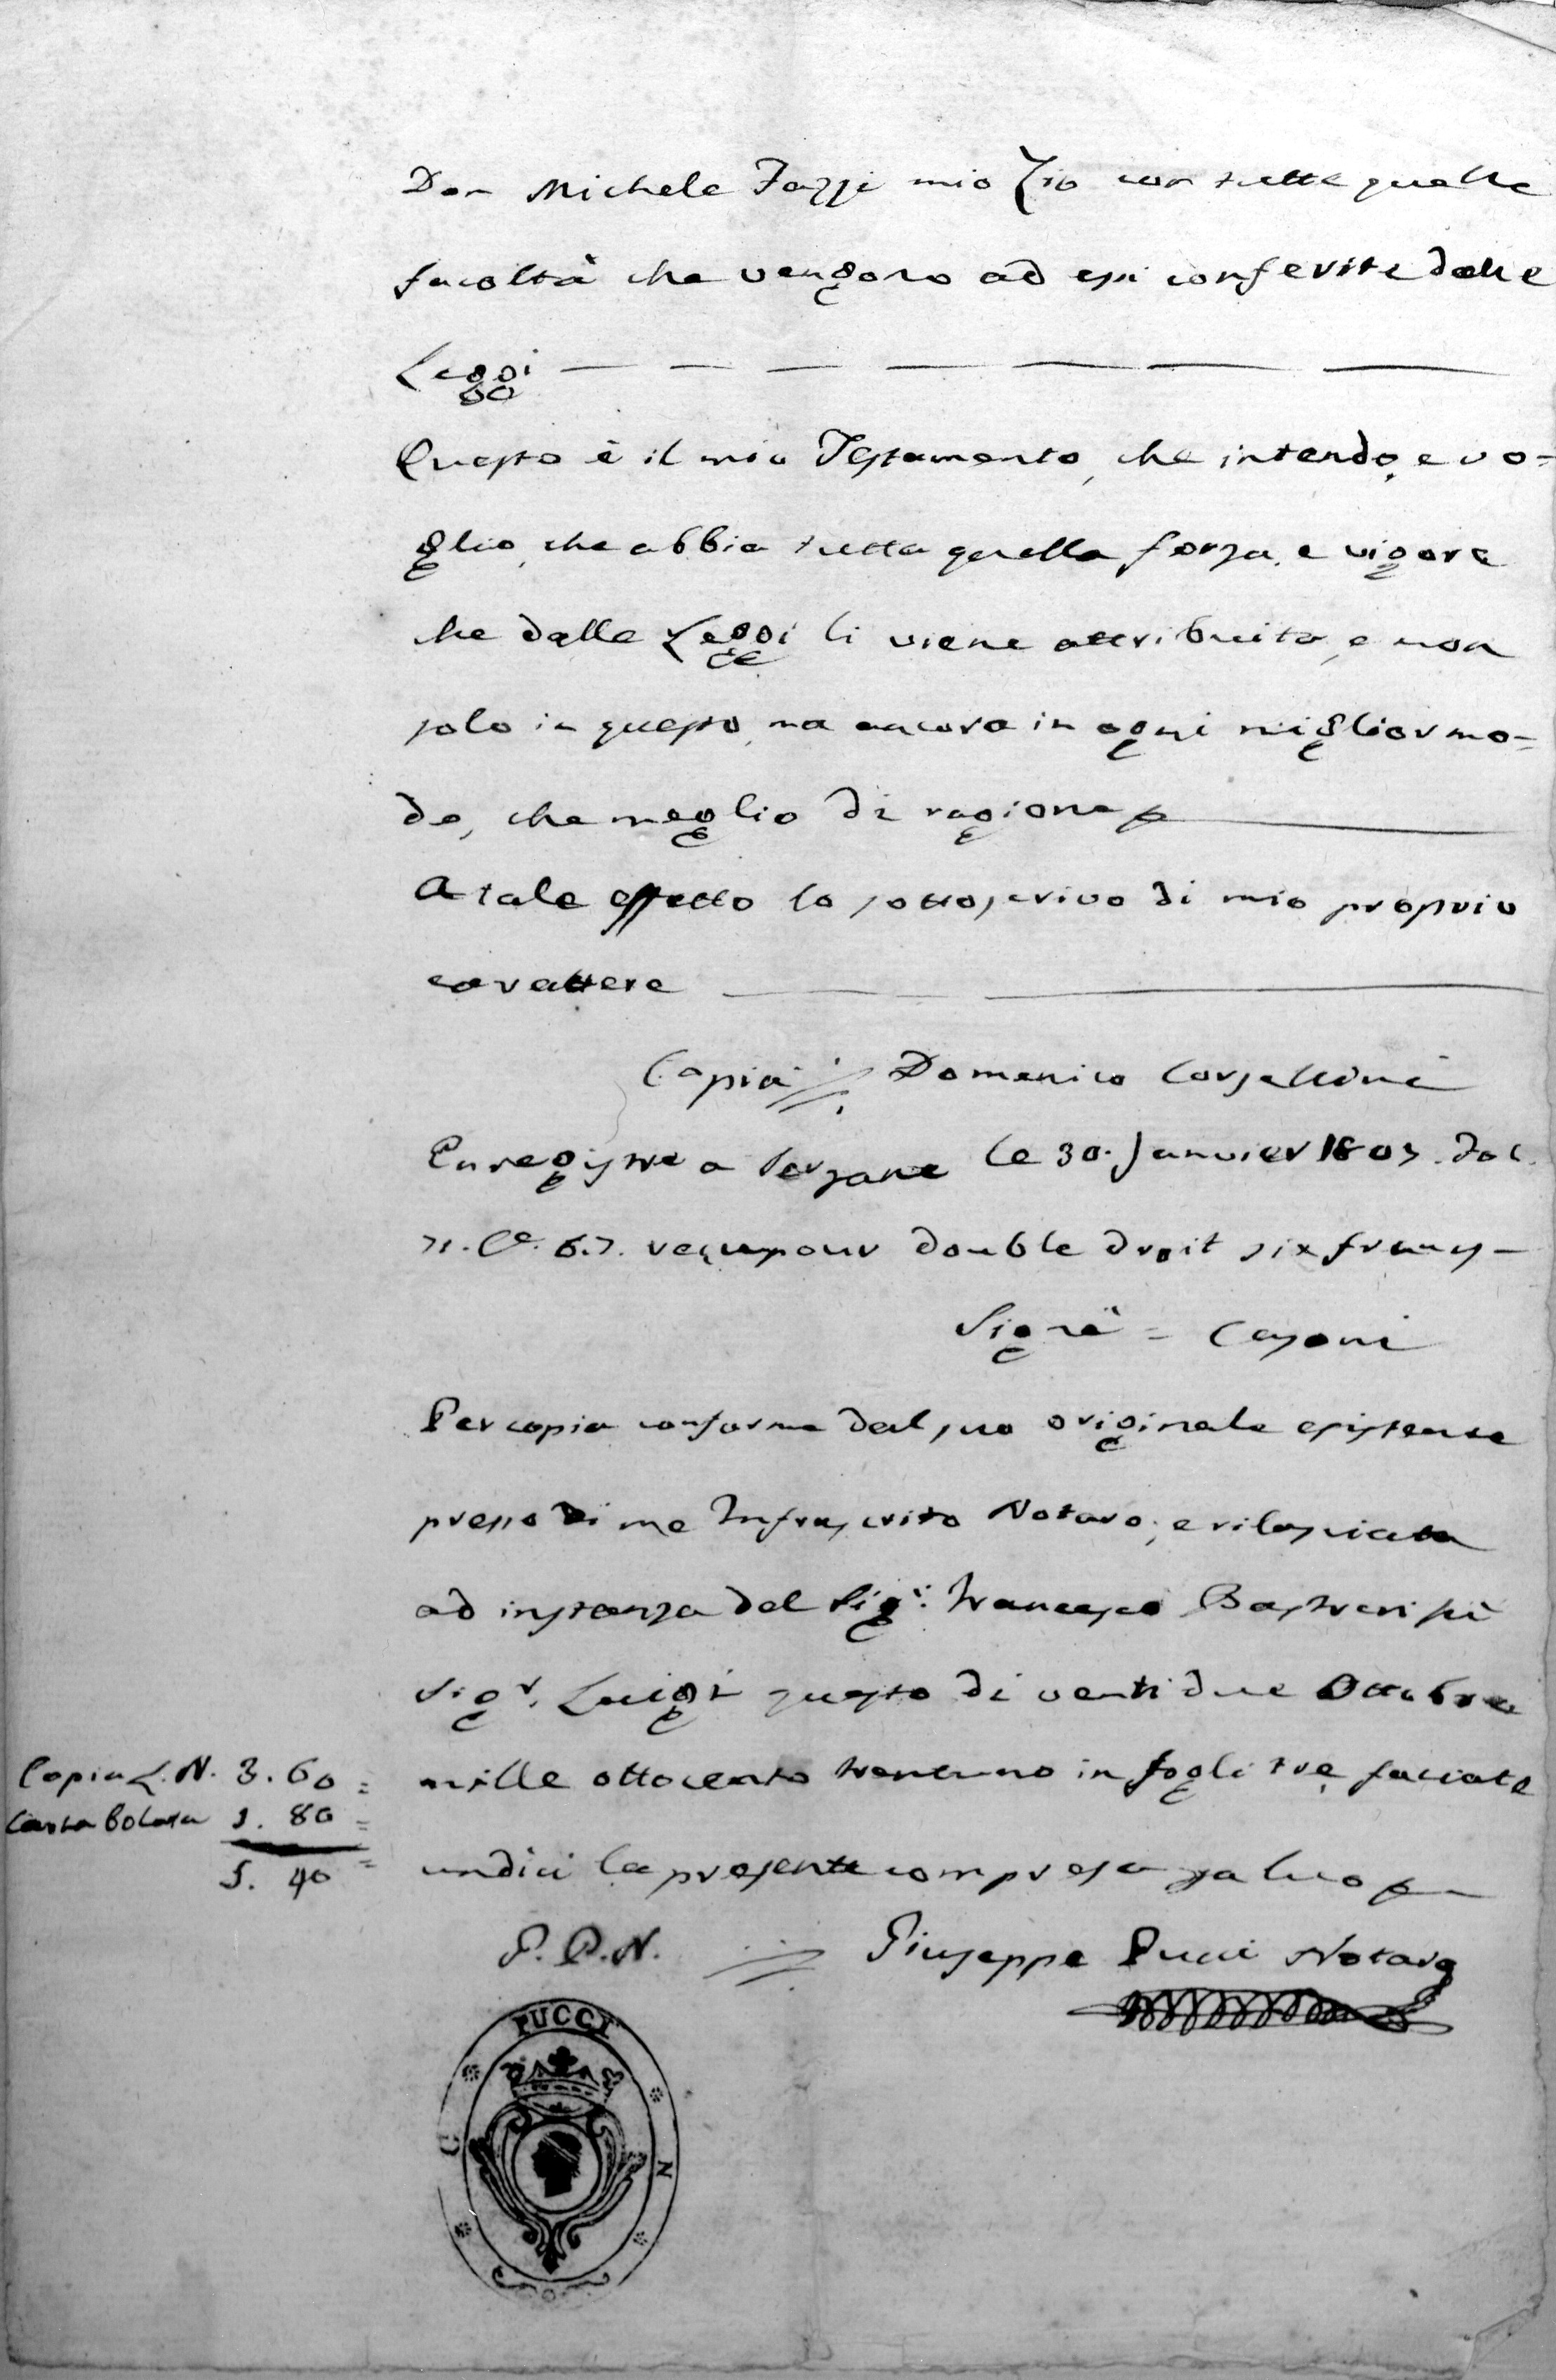 Don Michele Fazzi mio Zio con tutte quelle
facoltà che vengono ad essi conferite dalle
Leggi
Questo è il mio Testamento, che intendo, e vo=
glio, che abbia tutta quella forza, e vigore
che dalle Leggi li viene attribuito, e non
solo in questo, ma ancora in ogni miglior mo=
do, che meglio di ragione
A tale effetto lo sottoscrivo di mio proprio
carattere
Copia Domenico Corsellini
Enregistre a Sarzane le 30. Janvier 1807. fol.
71. Ce. 6.7. reçu pour double droit six francs
Signè = Casoni
Per copia conforme dal suo originale esistente
presso di me Infrascrito Notaro, e rilasciata
ad instanza del Sigr. Francesco Bastreri
Sigr. Luigi questo di ventidue Ottobre
mille ottocento trentuno in fogli tre faciate
undici la presente compresa salvo
Copia L.N. 3. 60 =
Carta bolata 1. 80 =
5. 40 =
G. P. N. Giuseppe Pucci Notaro
PUCCI
G N